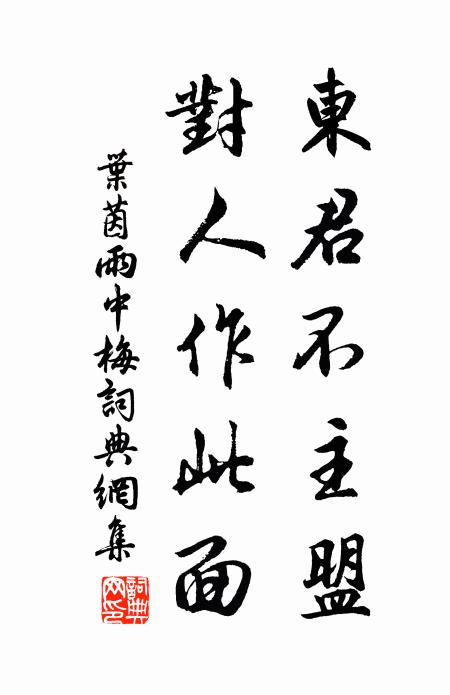 東君不主盟
對人作此面
葉茵雨中梅詞典網集
詞典网印